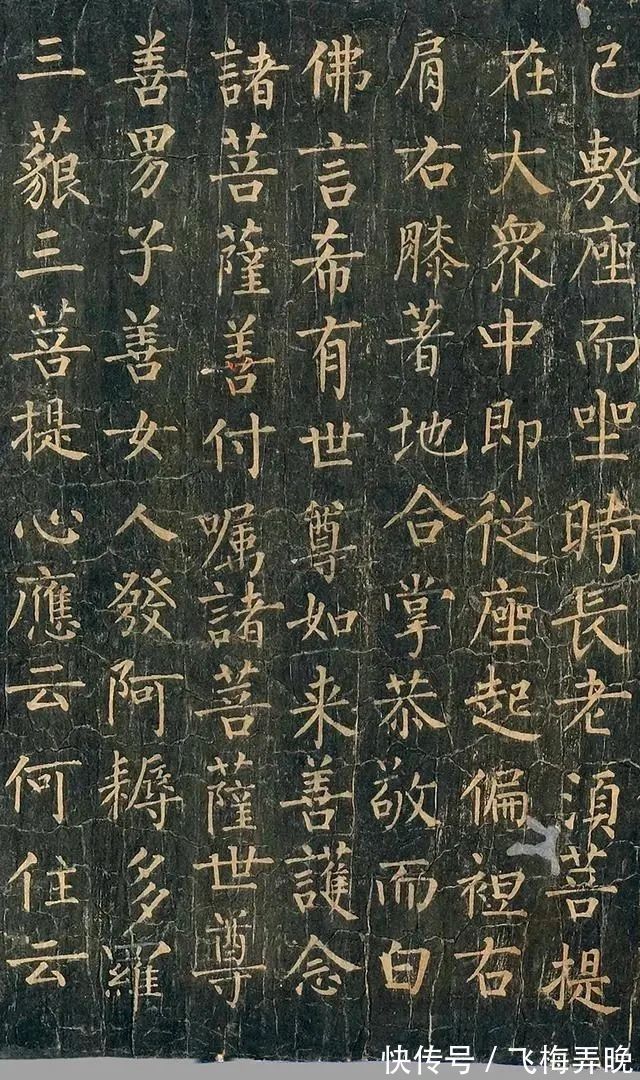 已敷座而坐時長老湏菩提
在大衆中即従座起偏袒右
肩右膝著地合掌恭敬而白
佛言希有世尊如来善護念
諸菩薩善付嘱諸菩薩世尊
善男子善女人發阿耨多羅
三藐三菩提心應云何住云
快传号／飞梅弄晚